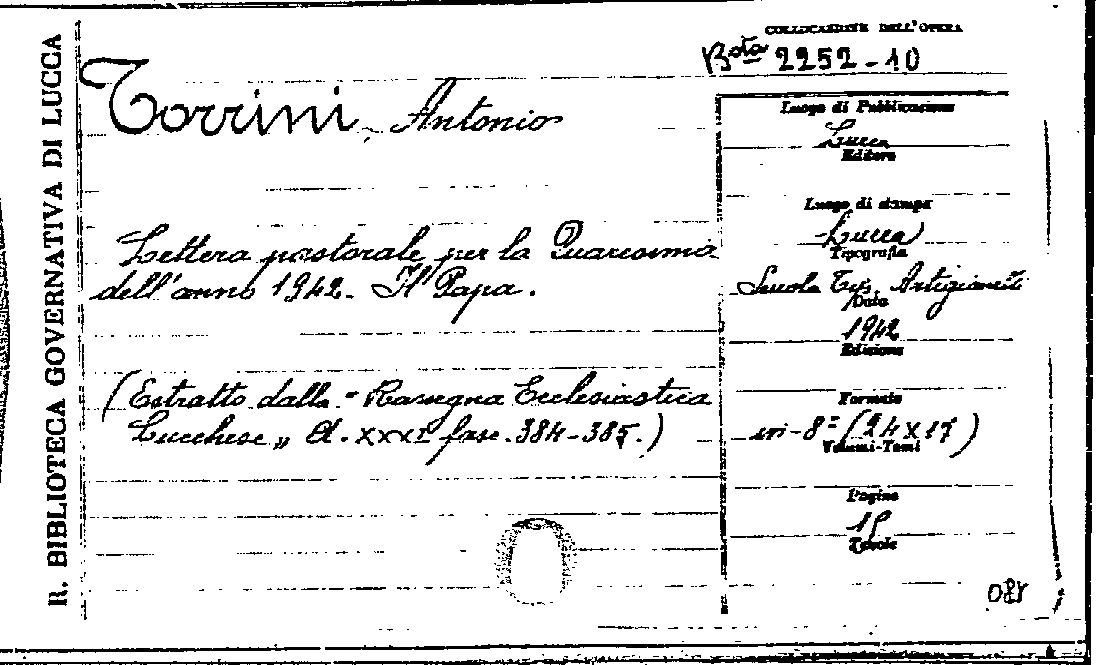 R. BIBLIOTECA GOVERNATIVA DI LUCCA
COLLOCAZIONE DELL'OPERA
Bsta 2252-10
Torrini, Antonio
Lettera pastorale per la Quaresima
dell'anno 1942. Il Papa.
(Estratto dalla "Rassegna Ecclesiastica
Lucchese" A. XXXI fasc. 384-385.)
Luogo di Pubblicazione
Lucca
Editore
Luogo di stampa
Lucca
Tipografia
Scuola Tip. Artigianelli
Data
1942
Edizione
Formato
in-8° (24x17)
Volumi-Tomi
Pagine
Tavole